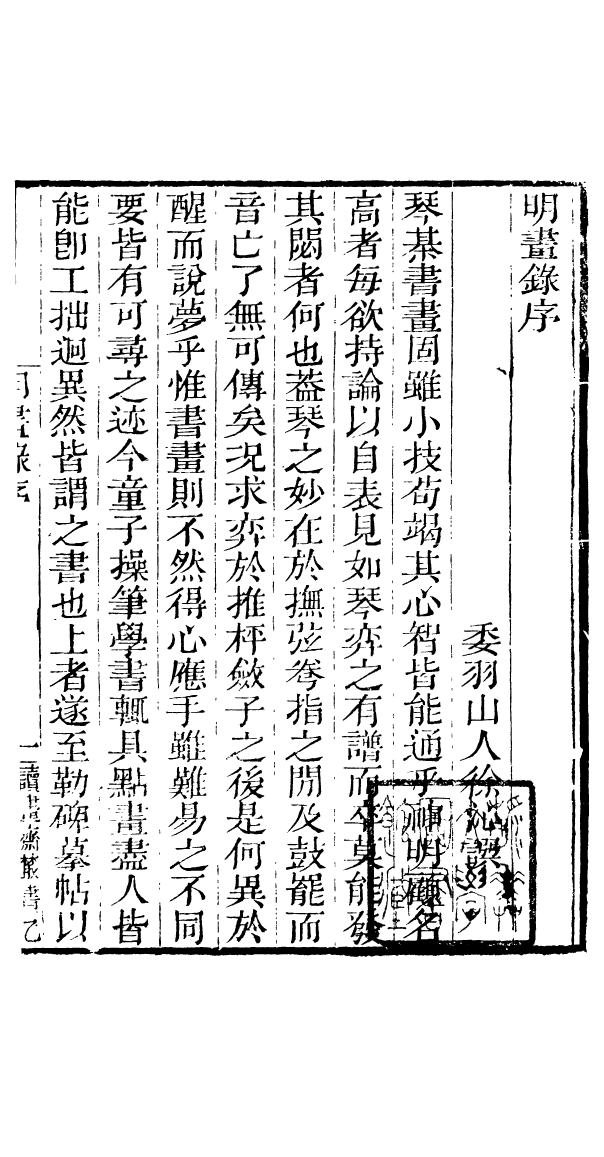 明畫錄序
委羽山人徐沁譔
琴棊書畫固雖小技茍竭其心智皆能通乎神明顧名
高者每欲持論以自表見如琴弈之有譜而卒莫能發
其閟者何也葢琴之妙在於撫弦捲指之閒及鼓罷而
音亡了無可傳矣況求弈於推枰斂子之後是何異於
醒而說夢乎惟書畫則不然得心應手雖難易之不同
要皆有可尋之迹今童子操筆學書輒具點畫盡人皆
能卽工拙迥異然皆謂之書也上者遂至勒碑摹帖以
明畫錄序 一 讀畫齋叢書 乙